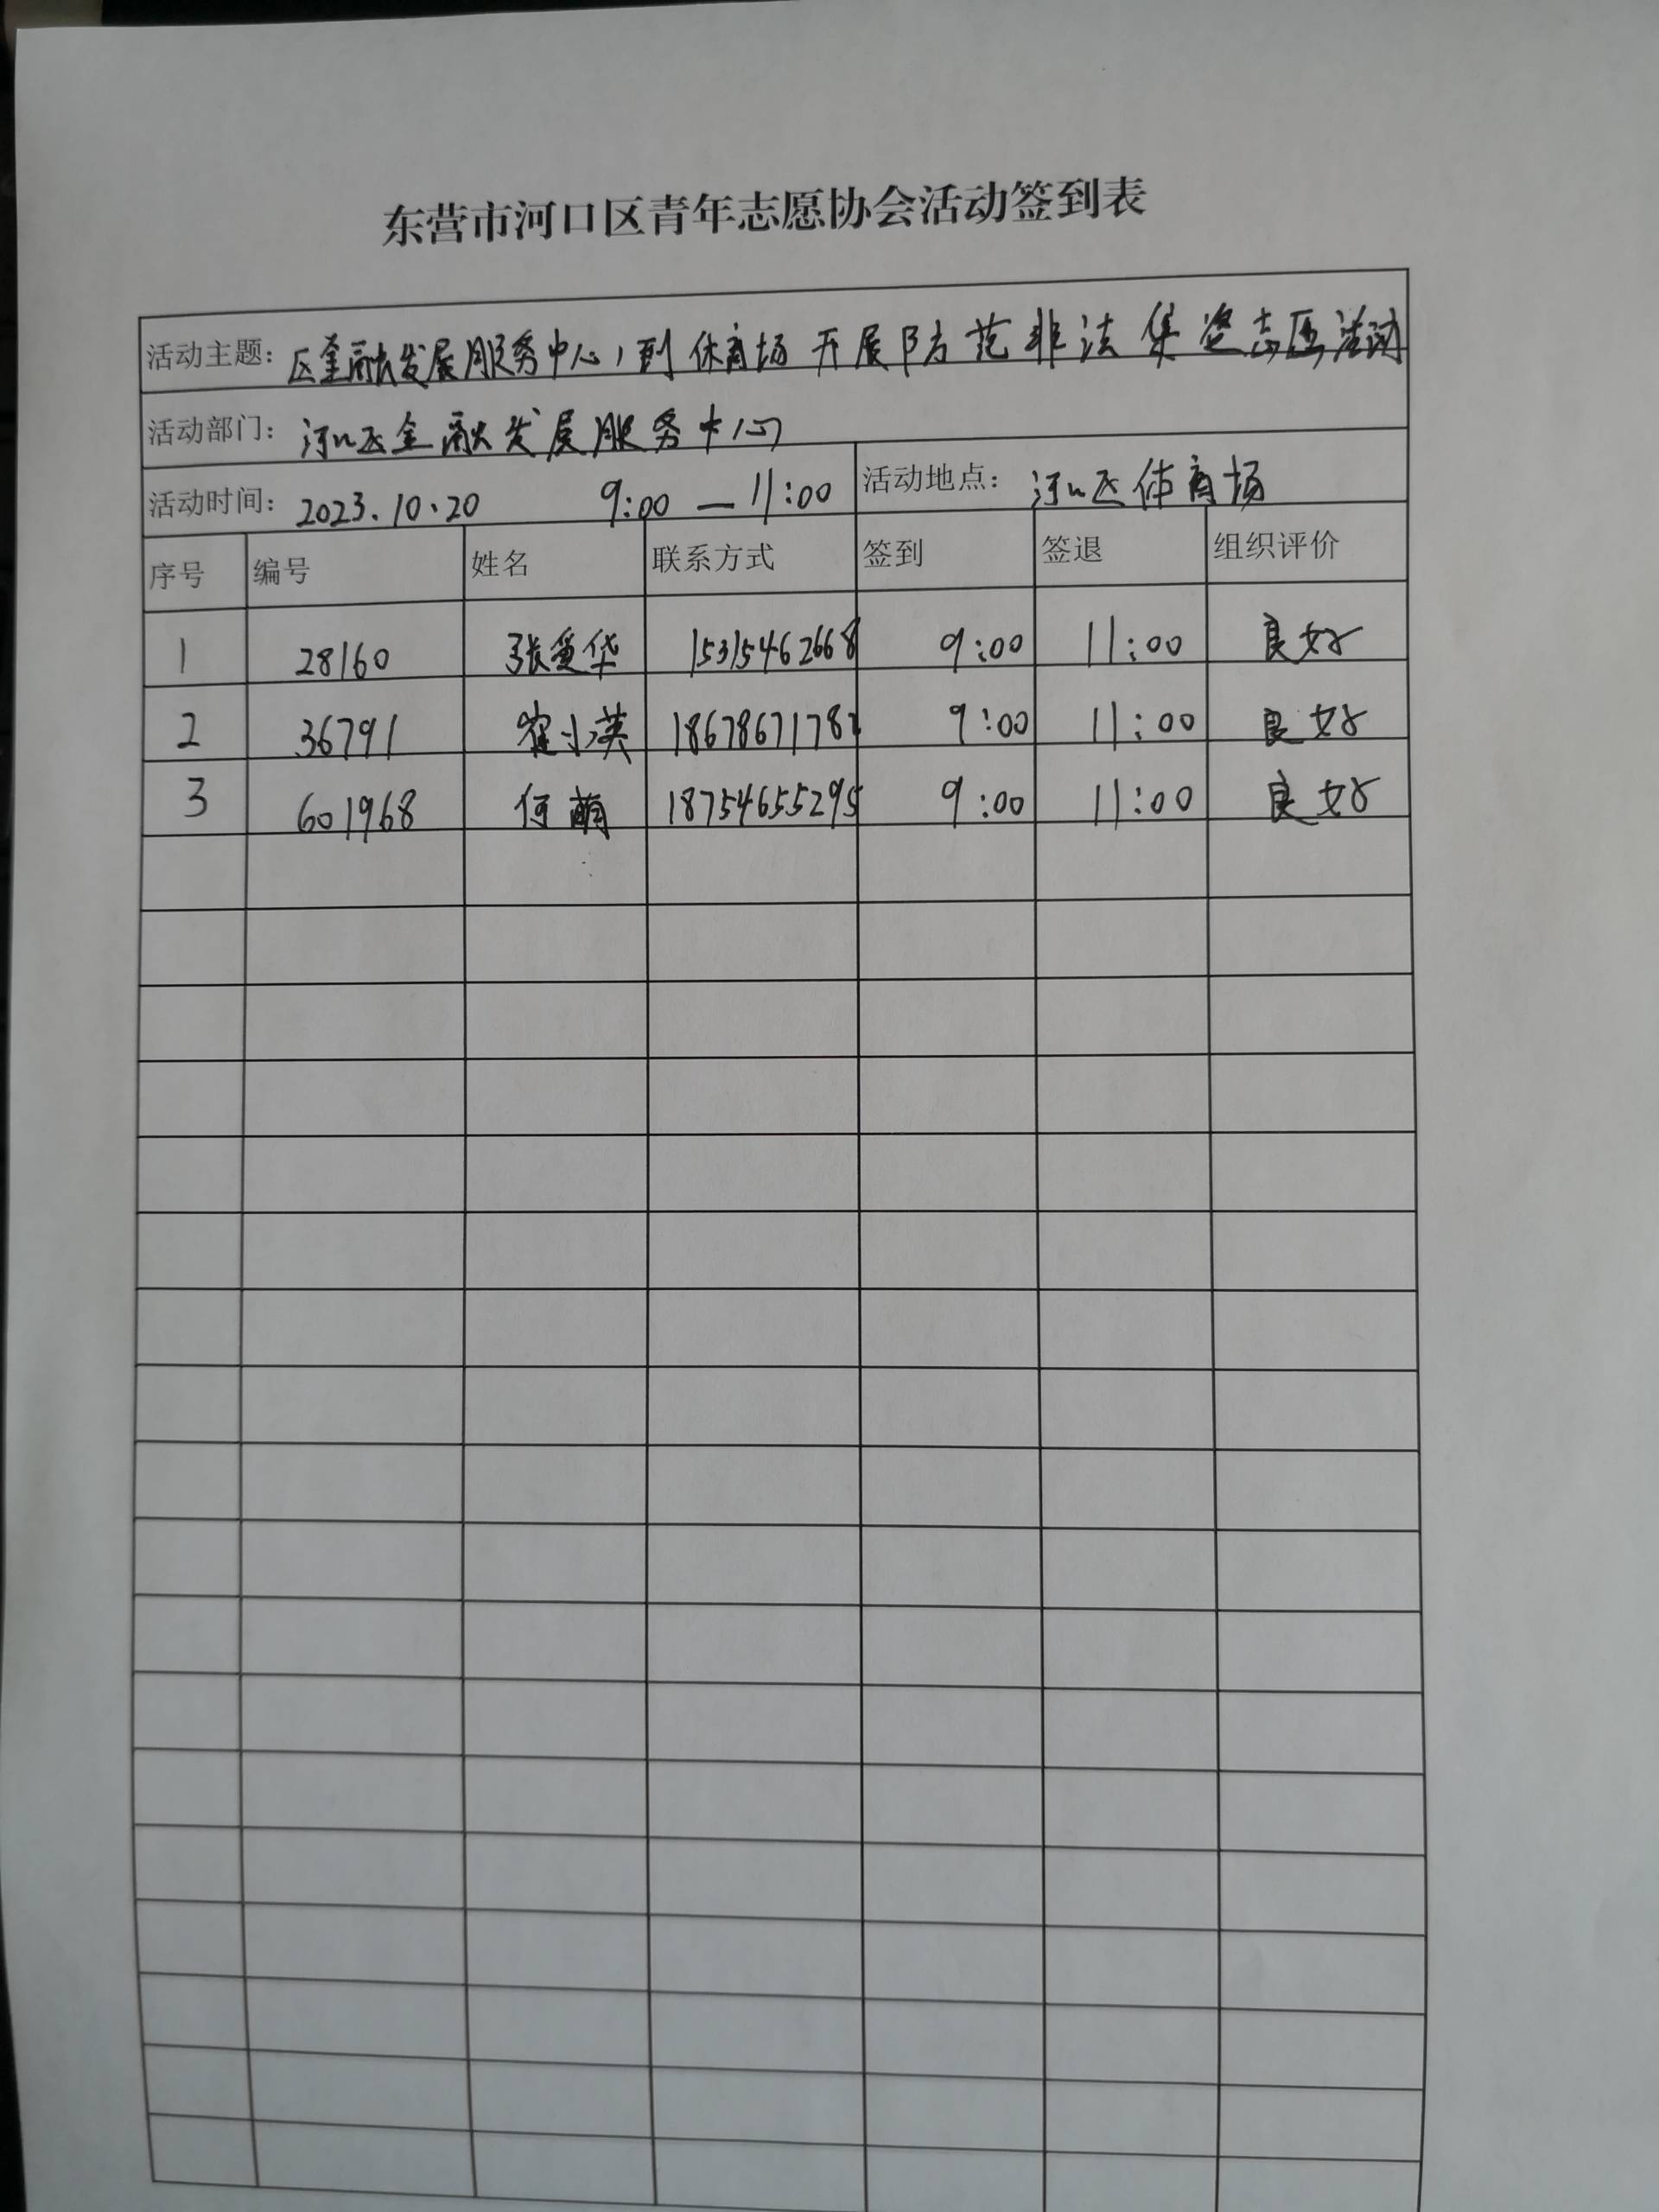 东营市河口区青年志愿协会活动签到表
活动主题：区金融发展服务中心，到体育场开展防范非法集资志愿活动
活动部门：河口区金融发展服务中心
活动时间：2023.10.20 9:00—11:00 活动地点：河口区体育场
序号 编号 姓名 联系方式 签到 签退 组织评价
1 28160 张爱华 15315462668 9:00 11:00 良好
2 36791 崔小英 9:00 11:00 良好
3 601968 何萌 18754655295 9:00 11:00 良好